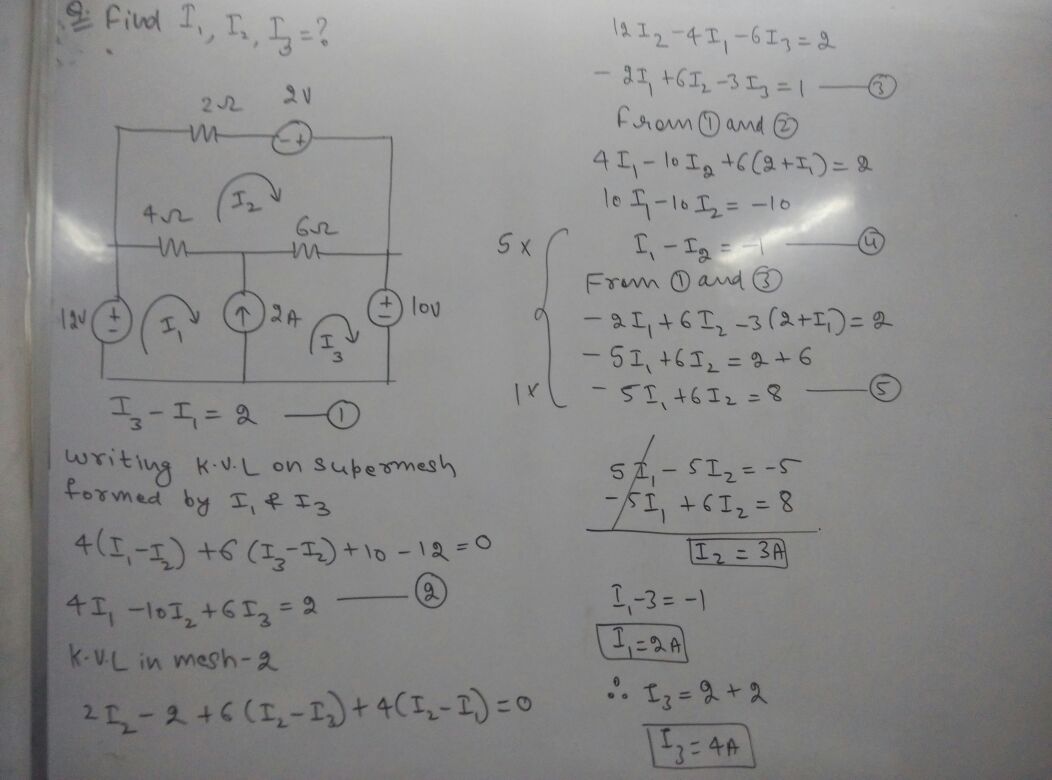 Q. Find I₁, I₂, I₃ = ?
2Ω
2V
- +
I₂
4Ω
6Ω
12V
+
-
I₁
2A
I₃
+
-
10V
I₃ - I₁ = 2 — ①
writing K.V.L on supermesh
formed by I₁ & I₃
4(I₁-I₂) +6 (I₃-I₂) +10 -12 =0
4I₁ -10I₂ +6I₃ = 2 — ②
K.V.L in mesh-2
2I₂ - 2 +6 (I₂-I₃) + 4(I₂-I₁) =0
12I₂ -4I₁ -6I₃ = 2
- 2I₁ +6I₂ -3I₃ = 1 — ③
from ① and ②
4I₁ - 10I₂ +6(2+I₁) = 2
10I₁ -10I₂ = -10
5x
I₁ - I₂ = -1 — ④
From ① and ③
- 2I₁ + 6I₂ -3(2+I₁) = 2
- 5I₁ +6I₂ = 2 + 6
1x
- 5I₁ +6I₂ = 8 — ⑤
5I₁ - 5I₂ = -5
- 5I₁ +6I₂ = 8
I₂ = 3A
I₁-3 = -1
I₁ = 2A
∴ I₃ = 2 + 2
I₃ = 4A